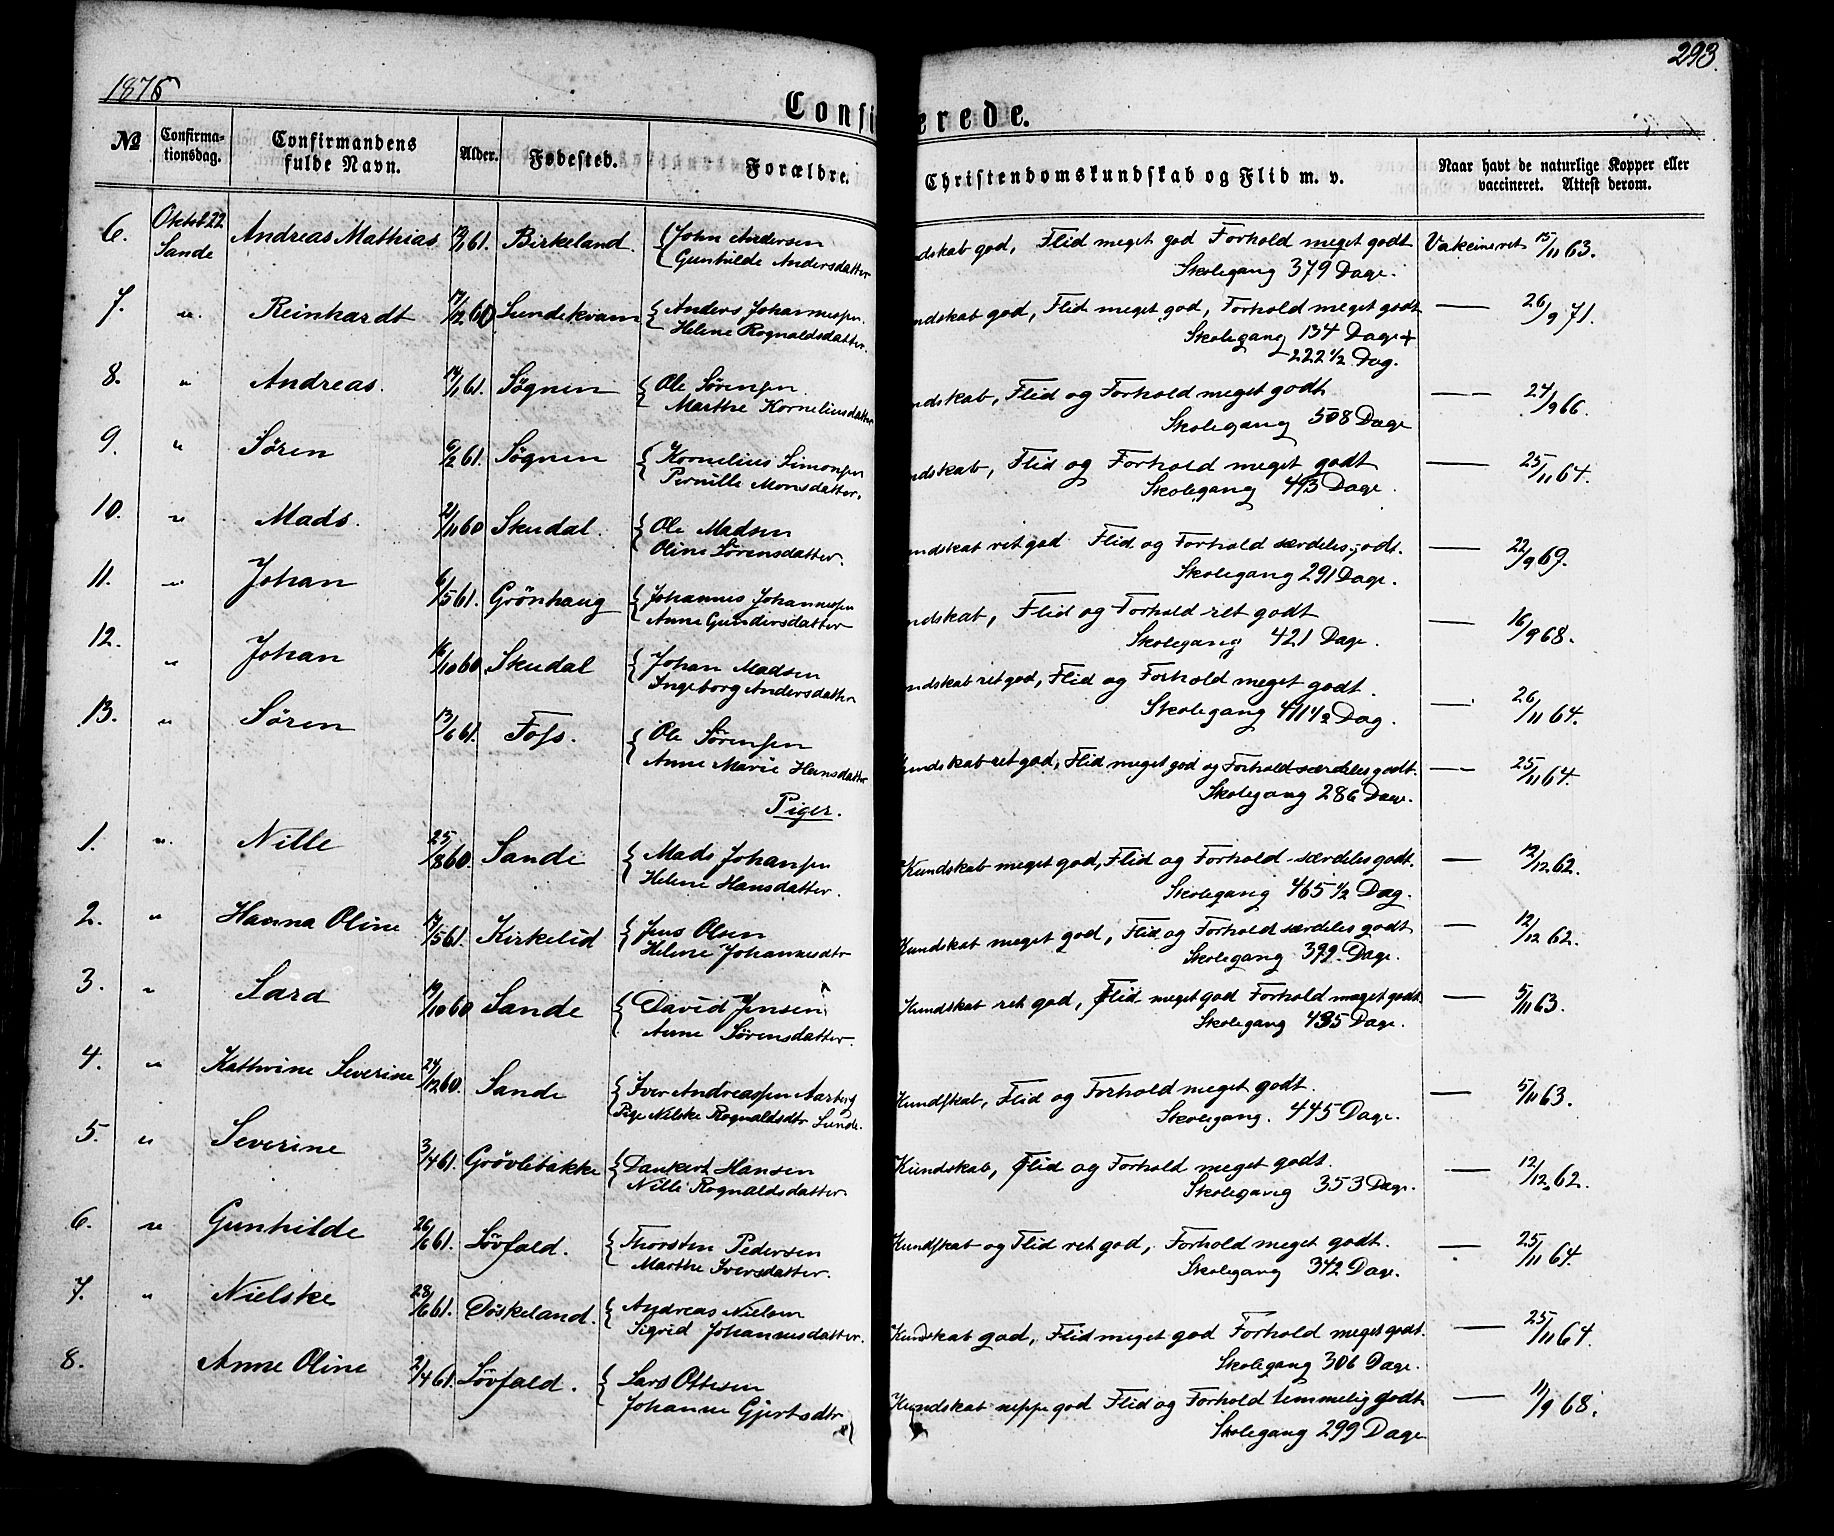 1876
293.
Confi erede.
No
Confirma-
tionsdag.
Confirmandens
fulde Navn.
Alder.
Fødested.
Forældre.
Christendomskundskab og Flid m. v.
Naar havt de naturlige Kopper eller
vaccineret. Attest derom.
6. Oktob 22 Sande Andreas Mathias 61. Birkeland. { John Andersen
Gunhilde Andersdatter
ndskab god, Flid meget god Forhold meget godt
Skolegang 379 Dage.
Vakcineret 15/11 63.
7. " Reinhardt 17/12 60 Sundekvam { Anders Johannessen.
Helene Rognaldsdatter.
ndskab god, Flid meget god, Forhold meget godt
Skolegang 134 Dage +
222 1/2 Dag.
— 26/9 71.
8. " Andreas. 14/1 61. Søgnen { Ole Sørensen
Marthe Korneliusdatter
ndskab, Flid og Forhold meget godt
Skolegang 508 Dage
— 24/9 66.
9. " Søren 6/2 61. Søgnen { Kornelius Simonsen
Pernille Monsdatter.
ndskab, Flid og Forhold meget godt
Skolegang 413 Dage.
— 25/11 64.
10. " Mads. 2/11 60 Skudal. { Ole Madsen
Oline Sørensdatter.
ndskab ret god Flid og Forhold særdeles godt.
Skolegang 291 Dage.
— 22/9 69.
11. " Johan 6/5 61. Grönhaug { Johannes Johannessen
Anne Gundersdatter
ndskab, Flid og Forhold ret godt
Skolegang 421 Dage.
— 16/9 68.
12. " Johan 16/10 60 Skudal { Johan Madsen
Ingeborg Andersdatter
ndskab ret god, Flid og Forhold meget godt.
Skolegang 411 1/2 Dag.
— 26/11 64.
13. " Søren 13/6 61. Foss. { Ole Sørensen
Anne Marie Hansdatter
Kundskab ret god, Flid meget god og Forhold særdeles godt.
Skolegang 286 Dage.
— 25/11 64.
Piger.
1. " Nille 25/8 60. Sande { Mads Johansen
Helene Hansdatter.
Kundskab meget god, Flid og Forhold særdeles godt.
Skolegang 465 1/2 Dag.
— 12/12 62.
2. " Hanna Oline 17/5 61. Kirkelid { Jens Olsen
Helene Johannesdtr
Kundskab meget god, Flid og Forhold særdeles godt
Skolegang 399. Dage.
— 12/12 62.
3. " Sara 19/10 60 Sande { David Jensen
Anne Sørensdatter.
Kundskab ret god, Flid meget god Forhold meget godt.
Skolegang 435 Dage.
— 5/11 63.
4. " Kathrine Severine 24/12 60. Sande { Iver Andreassen Aarberg
Pige Nilske Rognaldsdtr Sande.
Kundskab, Flid og Forhold meget godt.
Skolegang. 445 Dage.
— 5/11 63.
5. " Severine 3/4 61. Grøvlebakke { Dankert Hansen
Nille Rognaldsdatter
Kundskab, Flid og Forhold meget godt.
Skolegang 353 Dage.
— 12/12 62.
6. " Gunhilde 26/6 61. Løvfald. { Thorsten Pedersen
Marthe Iversdatter.
Kundskab og Flid ret god, Forhold meget godt.
Skolegang 342 Dage.
— 25/11 64.
7. " Nielske 28/6 61. Döskeland. { Andreas Nielsen
Sigrid Johannesdatter.
Kundskab god, Flid meget god Forhold meget godt.
Skolegang 306 Dage.
— 25/11 64.
8. Anne Oline 2/4 61. Løvfald. { Lars Ottesen
Johanne Gjertsdtr
Kundskab neppe god Flid og Forhold temmelig godt
Skolegang 299 Dage
— 11/9 68.